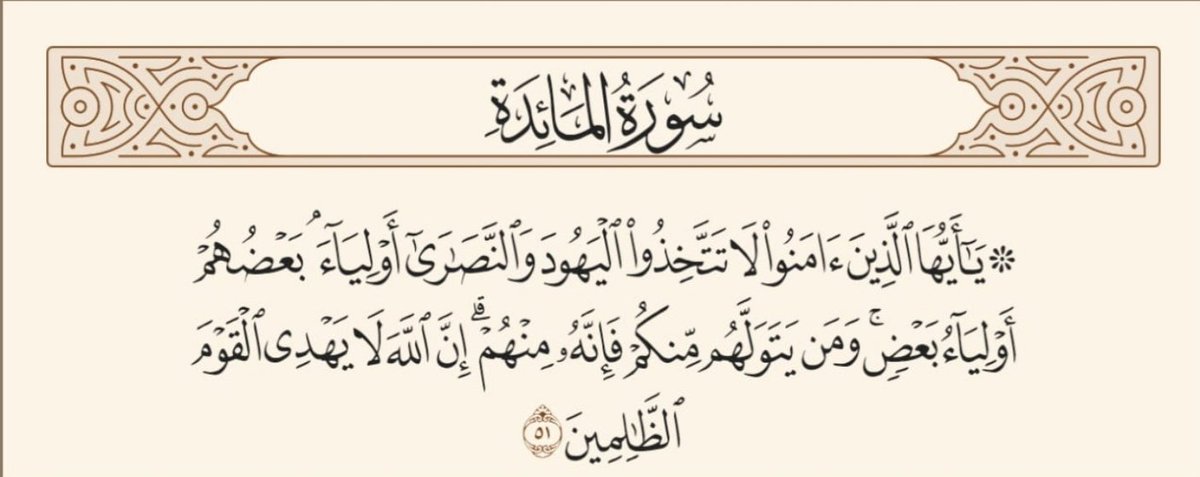 سُورَةُ المَائِدَةِ
۞ يَـٰٓأَيُّهَا ٱلَّذِينَ ءَامَنُوا۟ لَا تَتَّخِذُوا۟ ٱلْيَهُودَ وَٱلنَّصَـٰرَىٰٓ أَوْلِيَآءَ ۘ بَعْضُهُمْ
أَوْلِيَآءُ بَعْضٍ ۚ وَمَن يَتَوَلَّهُم مِّنكُمْ فَإِنَّهُۥ مِنْهُمْ ۗ إِنَّ ٱللَّهَ لَا يَهْدِى ٱلْقَوْمَ
ٱلظَّـٰلِمِينَ ٥١